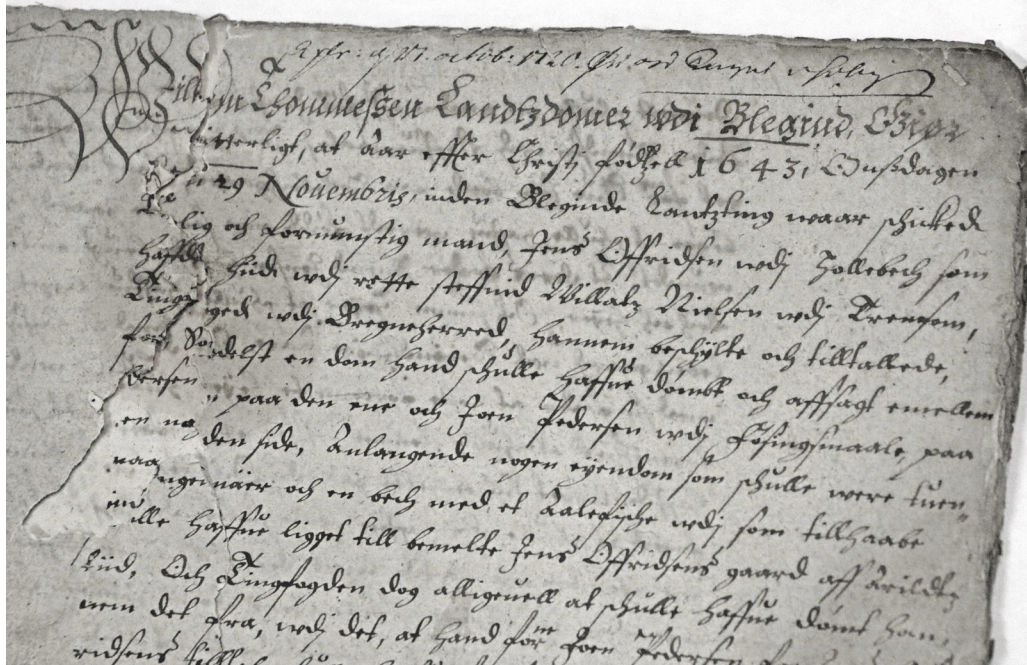 octob: 1720.
Thommeßen Landtzdomer wdi Blegind, Giør
witterligt, at Aar effter Christj fødtzell 1643, Onßdagen
29 Nouembris, inden Bleginde Lantzting waar schicked
lig och fornumstig mand, Jens Offridsen wdj Hollebech som
haffde hiid wdj rette steffnid Villatz Nielsen wdj Trensom,
wdj Bregneherred, hannem beschÿlte och tilltallede,
for, en dom hand schulle haffue dømbt och affsagt emellem
paa den ene och Joen Pedersen wdj Køsingsmaale, paa
den side, Anlangende nogen eÿendom som schulle were tuen„
och en bech med et Aalefische wdj som tillhaabe
haffue ligget till bemelte Jens Offridsens gaard aff Arildtz
tiid, Och Tingfogden dog alligeuell at schulle haffue dømt han„
nem det fra, wdj det, at hand før Joen Pedersen
ridsens